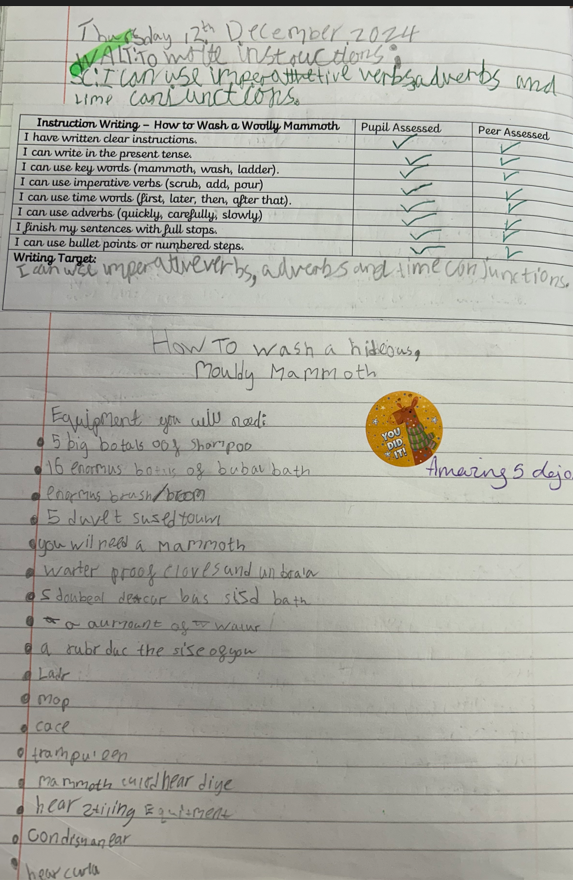 Thursday 12th December 2024
WALT: To write instructions:
SC: I can use imperative verbs adverbs and
time conjunctions.
Instruction Writing – How to Wash a Woolly Mammoth Pupil Assessed Peer Assessed
I have written clear instructions. ✓ ✓
I can write in the present tense. ✓ ✓
I can use key words (mammoth, wash, ladder). ✓ ✓
I can use imperative verbs (scrub, add, pour) ✓ ✓
I can use time words (first, later, then, after that). ✓ ✓
I can use adverbs (quickly, carefully, slowly) ✓ ✓
I finish my sentences with full stops. ✓ ✓
I can use bullet points or numbered steps. ✓ ✓
Writing Target:
I can use imperative verbs, adverbs and time conjunctions.
How To wash a hideous,
Mouldy Mammoth
Equipment you will need:
YOU DID IT!
• 5 big botals oof shampoo
Amazing 5 dojo
• 16 enormus botls of bubal bath
• enormus brush/broom
• 5 duvet sused toum
• you wil need a mammoth
• warter proof cloves and unbrala
• 5 doubeal bus sisd bath
• a aumount of
• a rubr duc the sise of you
• Ladr
• mop
• cace
• trampuleen
• mammoth culed hear diye
• hear Equitment
• Condisyanear
• hear curla